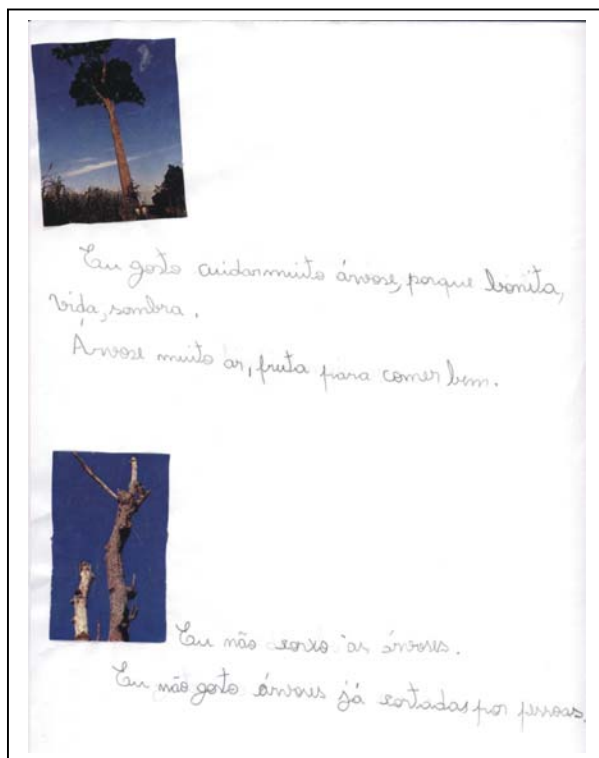 Eu gosto cuidar muito árvose, porque bonita,
vida, sombra.
Árvose muito ar, fruta para comer bem.
Eu não as árvores.
Eu não gosto árvores já cortadas por pessoas.